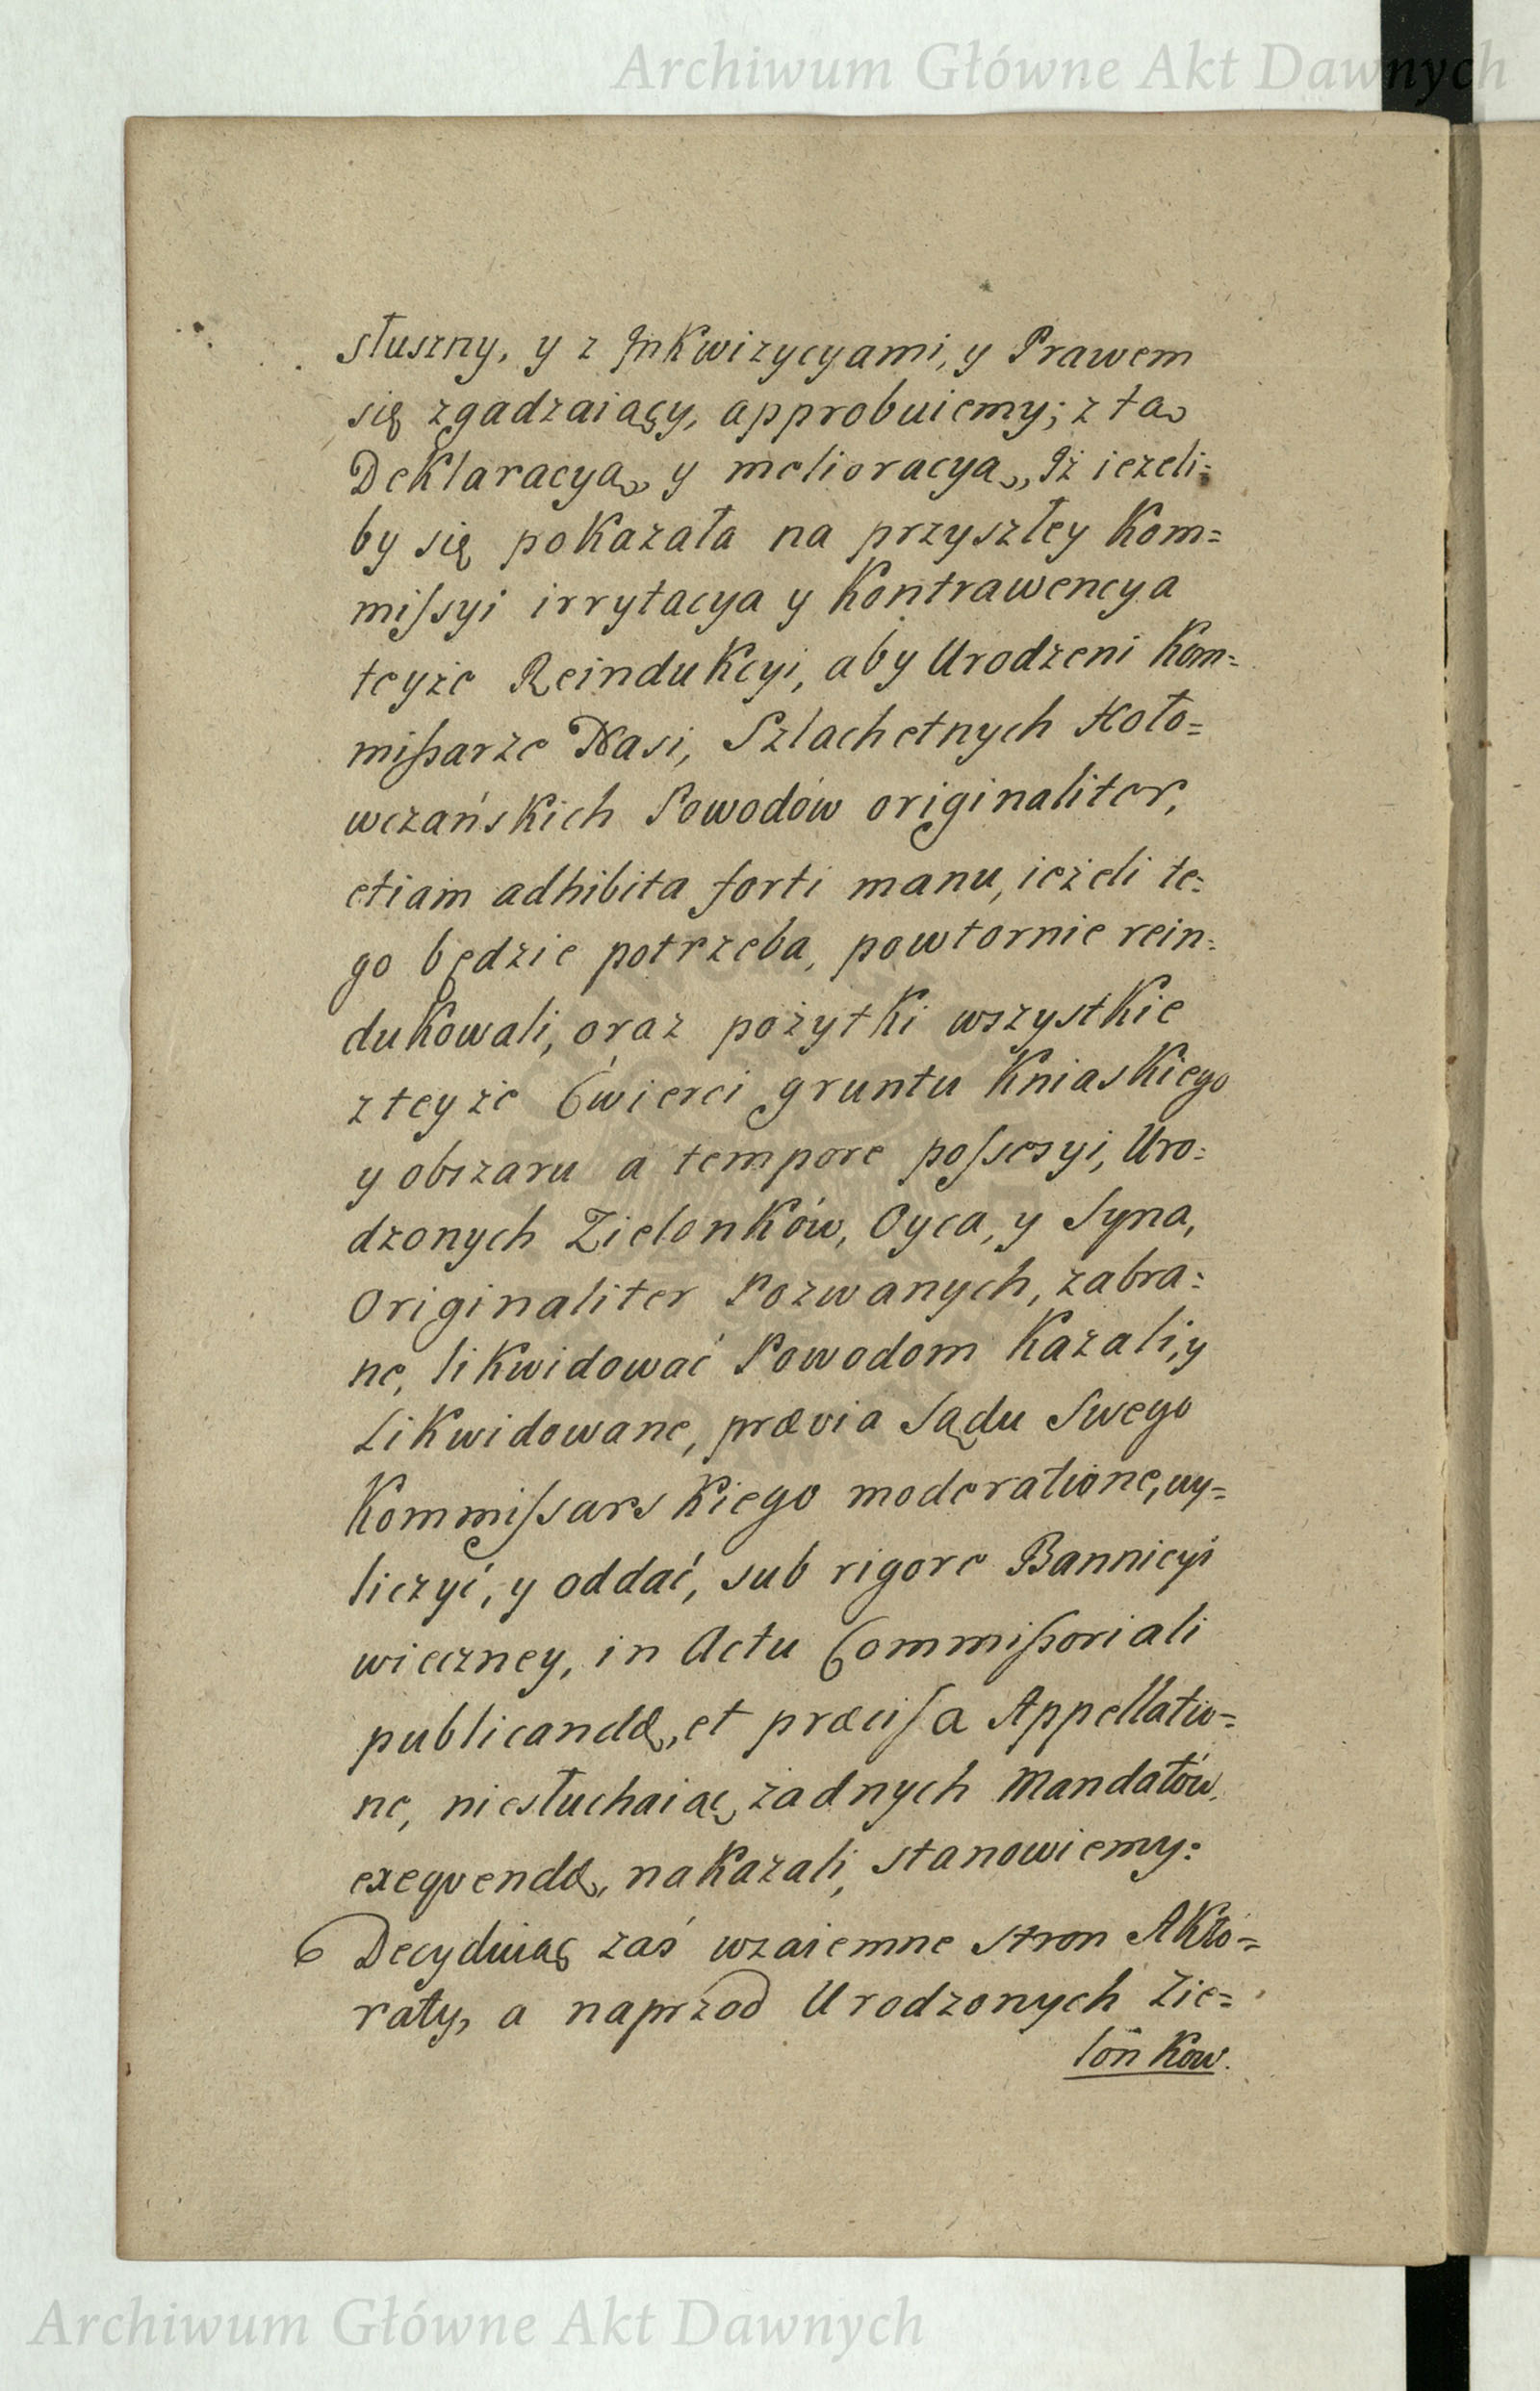 Archiwum Główne Akt Dawnych
słuszny, y z Inkwizycyami, y Prawem
się zgadzaiący, approbuiemy; z tą
Deklaracyą, y melioracyą, Iż ieżeli=
by się pokazała na przyszłey Kom=
missyi irrytacya y Kontrawencya
teyże Reindukcyi, aby Urodzeni Kom=
missarze Nasi, Szlachetnych Hoło=
wczańskich Powodów originaliter,
etiam adhibita forti manu, ieżeli te=
go będzie potrzeba, powtornie rein=
dukowali, oraz pożytki wszystkie
z teyże Cwierci gruntu Kniaskiego
y obszaru a tempore possesyi, Uro=
dzonych Zielonków, Oyca, y Syna,
Originaliter Pozwanych, zabra=
ne, likwidować Powodom Kazali, y
Likwidowane, prævia Sądu Swego
Kommissarskiego moderatione, wy=
liczyć, y oddać, sub rigore Bannicyi
wieczney, in Actu Commissoriali
publicandæ, et præcisa Appellatio=
ne, niesłuchaiąc żadnych Mandatów,
exeqvendæ, nakazali, stanowiemy:
Decyduiąc zaś wzaiemne stron Akto=
raty, a naprzod Urodzonych Zie=
lonkow.
Archiwum Główne Akt Dawnych